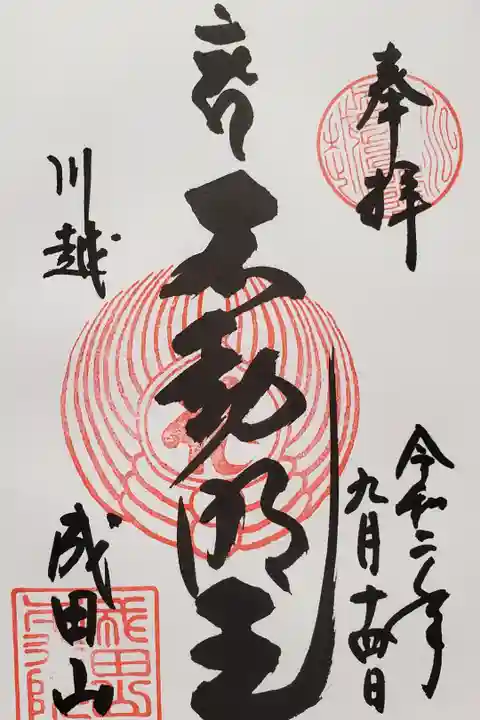 奉拝
令和二年
九月十四日
不動明王
川越
成田山